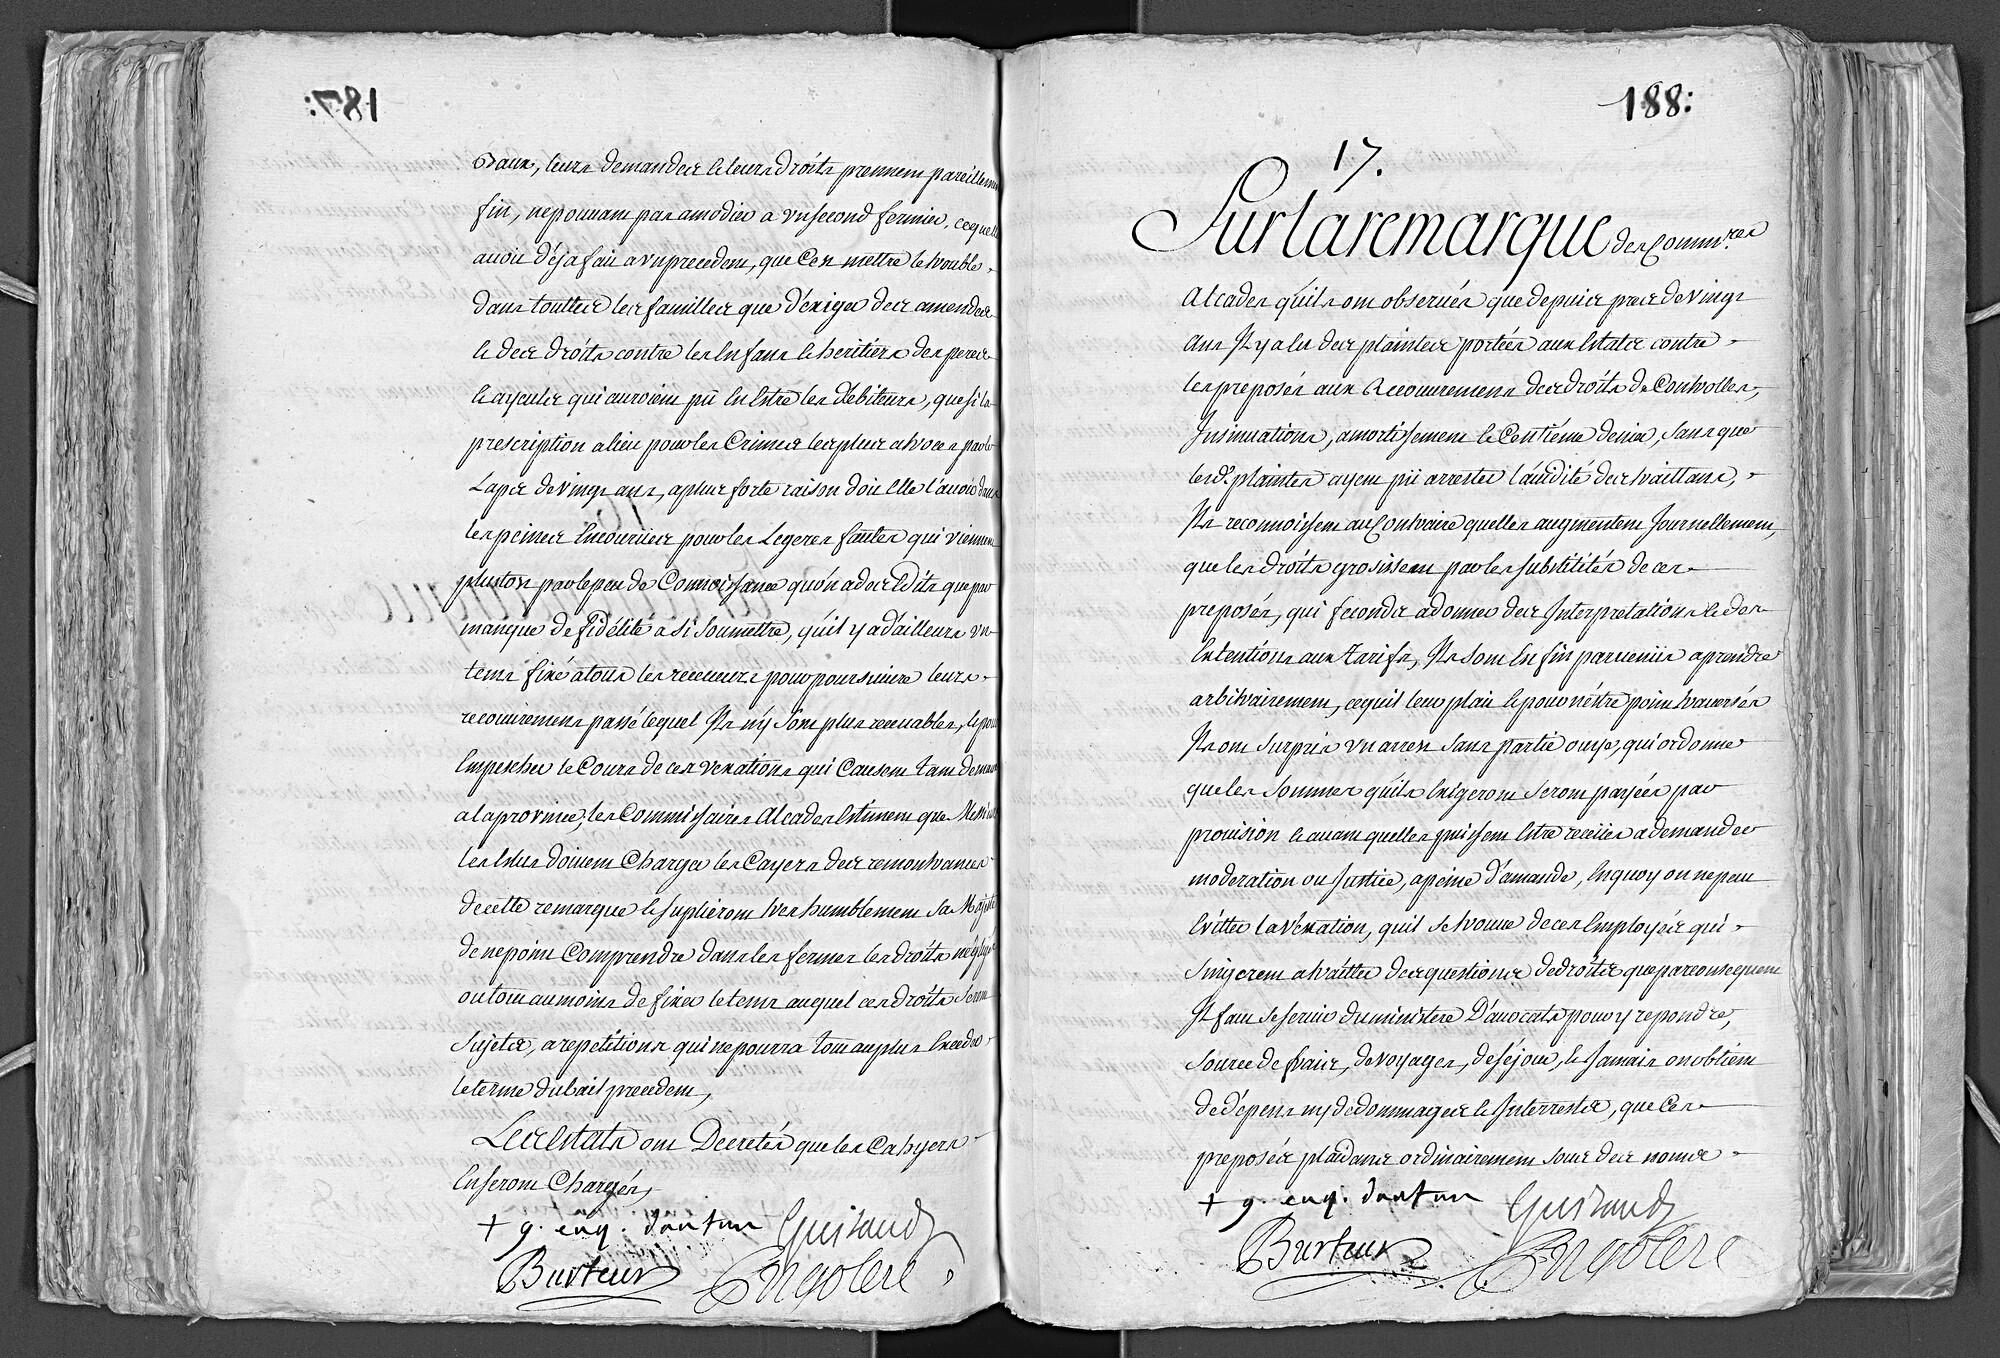 187:
Baux, leurs demandes et leurs droits prennent pareillement
fin, ne pouvant pas amodier a un second fermier, ce quelle
avoit déja fait a un precedent, que C'est mettre le trouble
dans touttes les familles que d'éxiger des amendes
et des droits contre les Enfans et heritiers des peres
et ayeules qui auroient pû En Estre les débiteurs, que si la
prescription a lieu pour les Crimes les plus atroces par le
Laps de vingt ans, a plus forte raison doit Elle l'avoir dans
les peines Encouruës pour les Legeres fautes qui viennent
plustost par le peu de Connoissance qu'on a des Edits que par
manque de fidélité a s'i soumettre, qu'il y a d'ailleurs un
tems fixé a tous les receveurs pour poursuivre leurs
recouvremens passé lequel Ils n'y sont plus recevables, et pour
Empescher le Cours de ces vexations qui Causent tant de maux
a la province, les Commissaires Alcades Estiment que Messieurs
les Elus doivent Charger les Cayers des remontrances
de cette remarque et suplieront tres humblement sa Majesté
de ne point Comprendre dans les fermes les droits négligés
ou tout au moins de fixer le tems auquel ces droits seront
sujets, a repetitions qui ne pourra tout au plus Exceder
le terme du bail precedent,
Les Estats ont Decretés que les Cahyers
En seront Chargés,
+ g. evq. d'autun Guiraud
Burteur Engolere
188:
17.
Sur la remarque des Comm.res
Alcades qu'ils ont observés que depuis pres de vingt
ans Il y a Eu des plaintes portées aux Estats contre
les preposés aux Recouvremens des droits de Controlles,
Insinuations, amortissement et Centiéme denier, sans que
lesd. plaintes ayent pû arrester l'avidité des traittans,
Ils reconnoissent au Contraire quelles augmentent Journellement,
que les droits grossissent par les subtilités de ces
preposés, qui feconds a donner des Interpretations et des
Extentions aux tarifs, Ils sont Enfin parvenus a prendre
arbitrairement, ce qu'il leur plait et pour n'éstre point traversés
Ils ont surpris un arrest sans partie ouye, qui ordonne
que les sommes qu'ils Exigeront seront payées par
provision et avant quelles puissent Estre receües a demander
moderation ou Justice, a peine d'amande, En quoy on ne peut
Evitter la véxation, qu'il se trouve de ces Employés qui
s'ingerent a traitter des questions de droits que par consequent
Il faut se servir du ministere D'avocats pour y repondre,
source de frais, de voyages, de séjour, et Jamais on obtient
de dépens ny de dommages et Interrests, que Ces
preposés plaidans ordinairement sous des noms
+ g. evq. d'autun Guiraud
Burteur Engolere